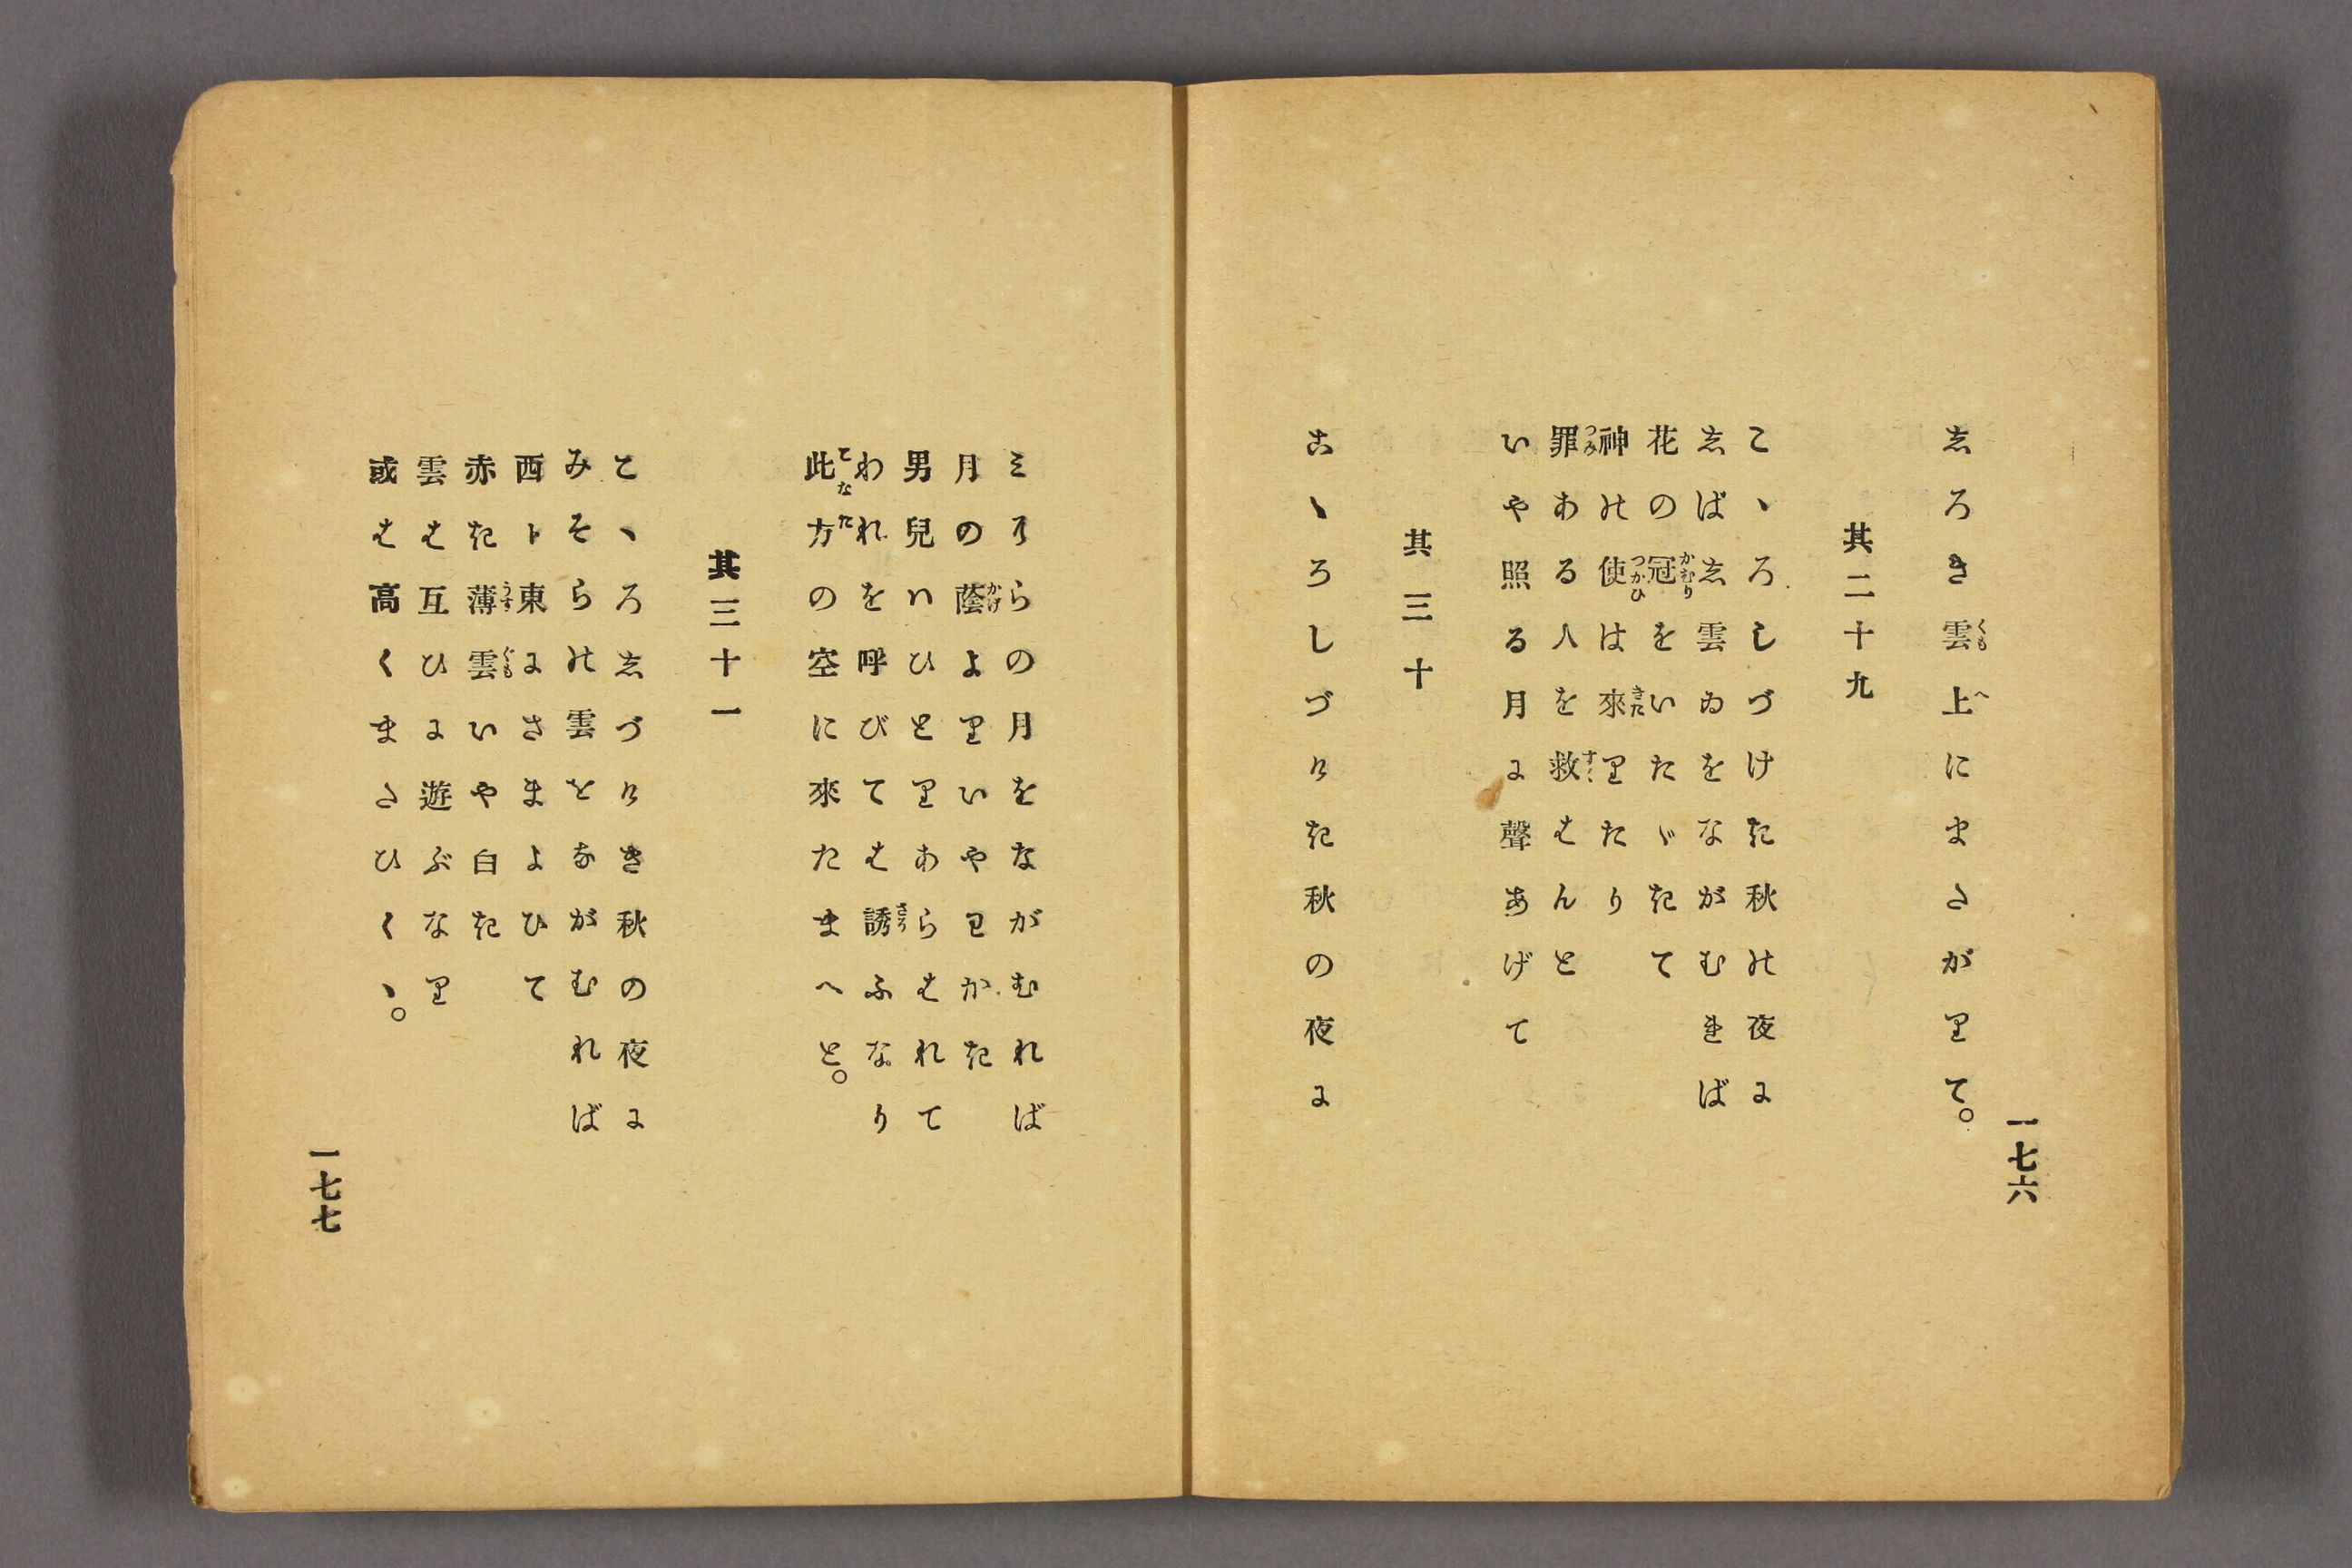 一七六
しろき雲上にまさがりて。
其二十九
こゝろしづけき秋の夜に
しばし雲ゐをながむれば
花の冠をいたゞきて
神の使は來りたり
罪ある人を救はんと
いや照る月に聲あげて
其三十
こゝろしづけき秋の夜に
みそらの月をながむれば
月の蔭よりいやわかき
男兒いひとりあらはれて
われを呼びては誘ふなり
此方の空に來たまへと。
其三十一
こゝろしづけき秋の夜に
みそらの雲をながむれば
西ト東にさまよひて
赤き薄雲いや白き
雲は互ひに遊ぶなり
或は高くまたひくゝ。
一七七